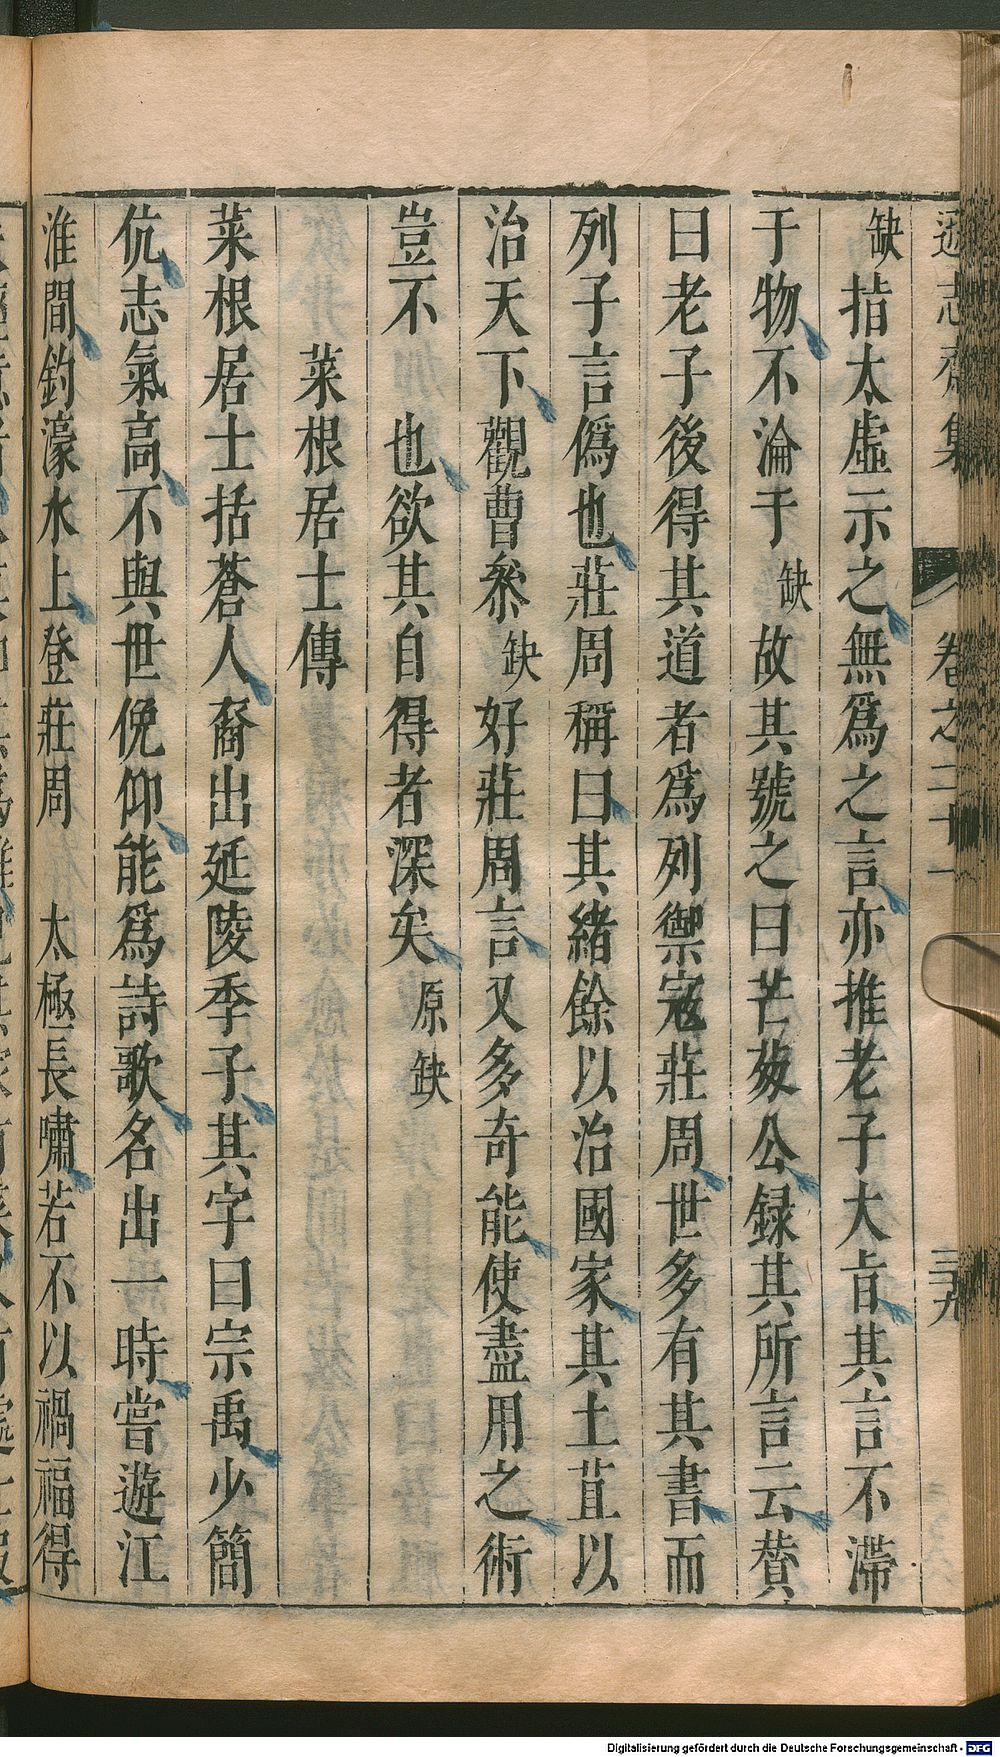 遜志齋集 卷之二十一 三九
缺指太虛示之無爲之言亦推老子大旨其言不滯
于物不淪于缺故其號之曰芒芴公録其所言云贊
曰老子後得其道者爲列禦寇莊周世多有其書而
列子言僞也莊周稱曰其緒餘以治國家其土苴以
治天下觀曹參缺好莊周言又多奇能使盡用之術
豈不 也欲其自得者深矣原缺
菜根居士傳
菜根居士括蒼人裔出延陵季子其字曰宗禹少簡
伉志氣高不與世俛仰能爲詩歌名出一時嘗遊江
淮間釣濠水上登莊周 太極長嘯若不以禍福得
Digitalisierung gefördert durch die Deutsche Forschungsgemeinschaft - DFG